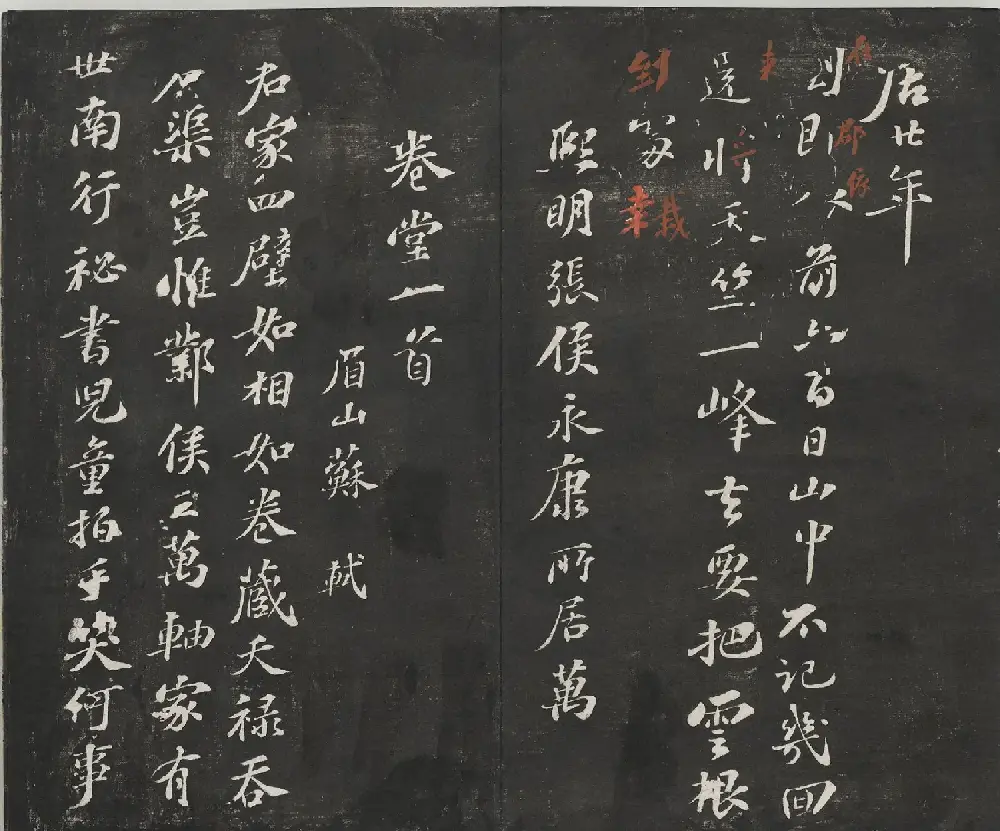 居廿年
前六百日山中不記幾回
還將天竺一峰去要把雲根
到處栽
熙明張侯永康所居萬
卷堂一首
眉山蘇軾
君家四壁如相如卷藏天祿吞
石渠豈惟鄴侯三萬軸家有
世南行祕書兒童拍手笑何事